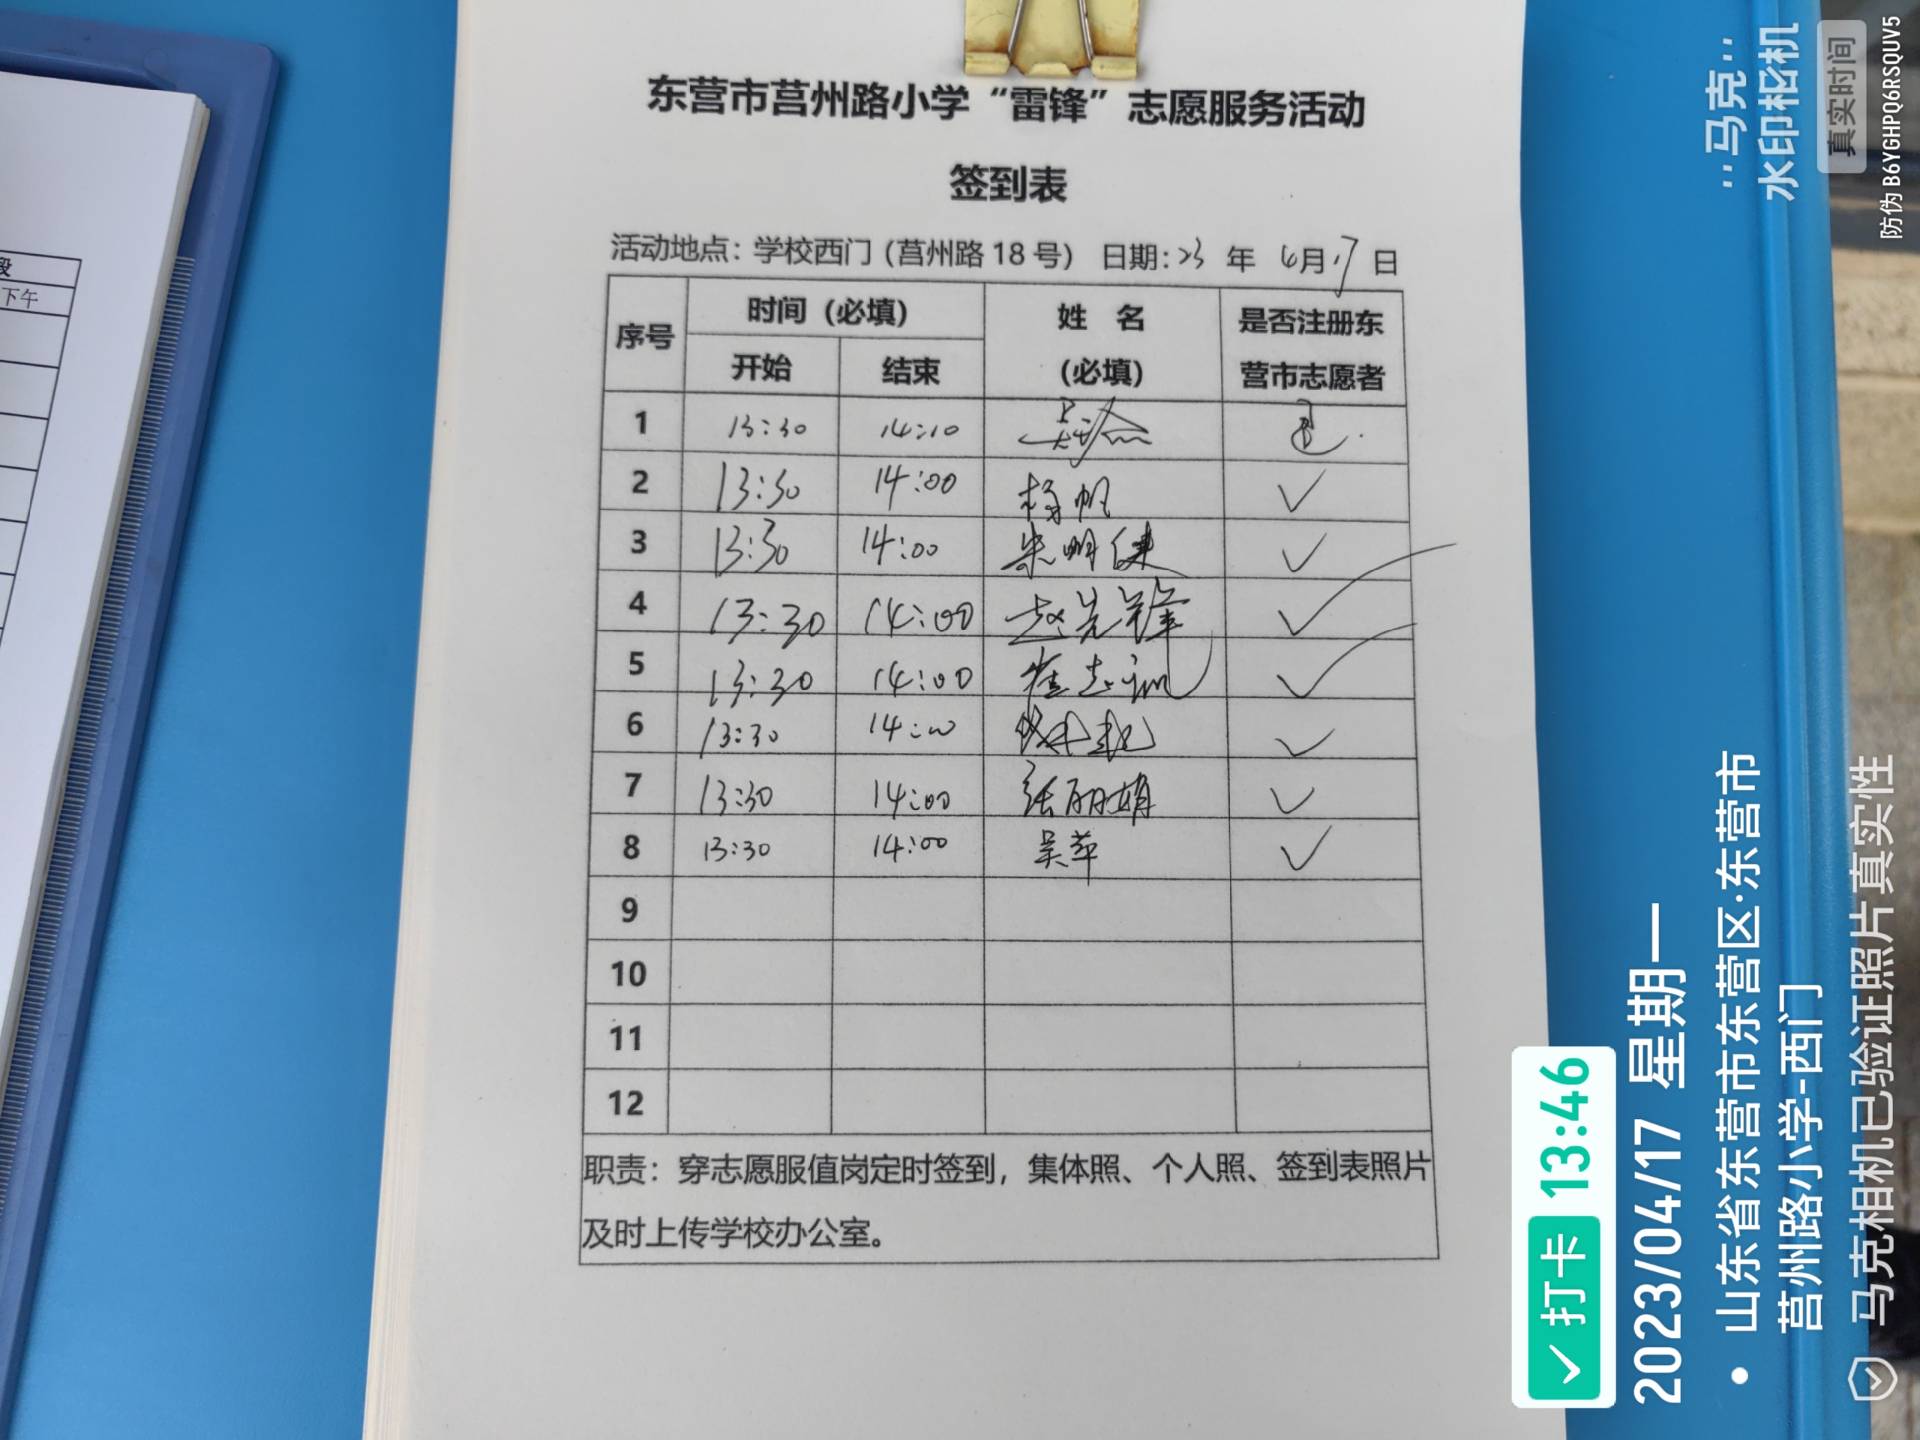 段
下午
东营市莒州路小学“雷锋”志愿服务活动
签到表
活动地点：学校西门（莒州路 18 号） 日期：23 年 4月17日
序号 时间（必填） 姓 名（必填） 是否注册东营市志愿者
开始 结束
1 13:30 14:10 是
2 13:30 14:00 杨帆 ✓
3 13:30 14:00 朱明健 ✓
4 13:30 14:00 赵先锋 ✓
5 13:30 14:00 崔志训 ✓
6 13:30 14:00 ✓
7 13:30 14:00 张丽娟 ✓
8 13:30 14:00 吴苹 ✓
9
10
11
12
职责：穿志愿服值岗定时签到，集体照、个人照、签到表照片
及时上传学校办公室。
打卡 13:46
2023/04/17 星期一
山东省东营市东营区·东营市
莒州路小学-西门
马克相机已验证照片真实性
马克
水印相机
真实时间
防伪 B6YGHPQ6RSQUV5